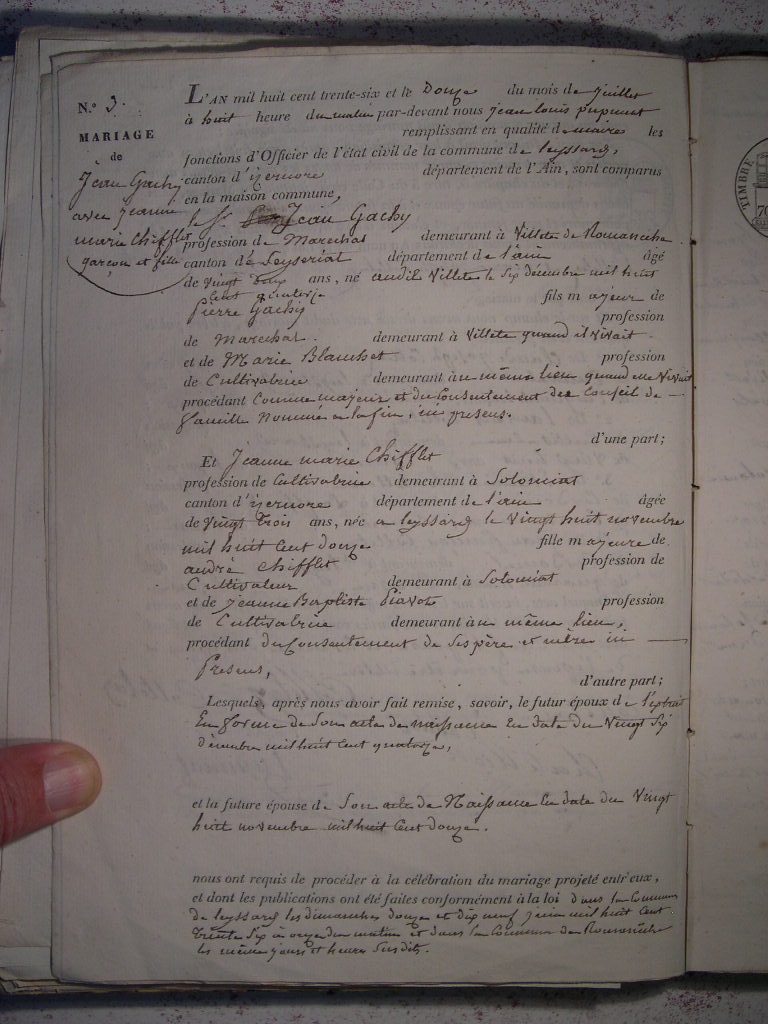 N.° 3.
MARIAGE
de
Jean Gachy
avec jeanne
marie Chifflet
garçon et fille
L'AN mil huit cent trente-six et le Douze du mois de juillet
à huit heure du matin par-devant nous jean louis
remplissant en qualité de maire les
fonctions d'Officier de l'état civil de la commune de leyssard,
canton d'izernore département de l'Ain, sont comparus
en la maison commune,
le Sr. Jean Gachy
profession de Marechal demeurant à Villete de Romaneche
canton de Ceyseriat département de l'ain âgé
de vingt Deux ans, né audit Villete le Six décembre mil huit
Cent quatorze fils majeur de
Pierre Gachy profession
de Marechal. demeurant à Villete quand il vivait.
et de Marie Blanchet profession
de Cultivatrice demeurant au même lieu quand elle vivait
procédant Comme majeur et du Consentement de Conseil de
famille Nommé a la fin, ici presens.
d'une part;
Et Jeanne marie Chifflet
profession de Cultivatrice demeurant à Solomiat
canton d'izernore département de l'ain âgée
de vingt trois ans, née a leyssard le vingt huit novembre
mil huit Cent douze fille majeure de
andré Chifflet profession de
Cultivateur demeurant à Solomiat
et de jeanne Baptiste profession
de Cultivatrice demeurant au même lieu,
procédant du Consentement de Ses père et mère ici
Presens,
d'autre part;
Lesquels, après nous avoir fait remise, savoir, le futur époux de l'extrait
En forme de Son acte de naissance En date du Vingt Six
décembre mil huit Cent quatorze,
et la future épouse de Son acte de Naissance En date du Vingt
huit novembre mil huit Cent douze.
nous ont requis de procéder à la célébration du mariage projeté entr'eux,
et dont les publications ont été faites conformément à la loi dans la Commune
de leyssard les dimanches douze et dix neuf juin mil huit Cent
trente Six à onze du matin et dans la Commune de Romaneche
les même jours et heures Susdits.
TIMBRE